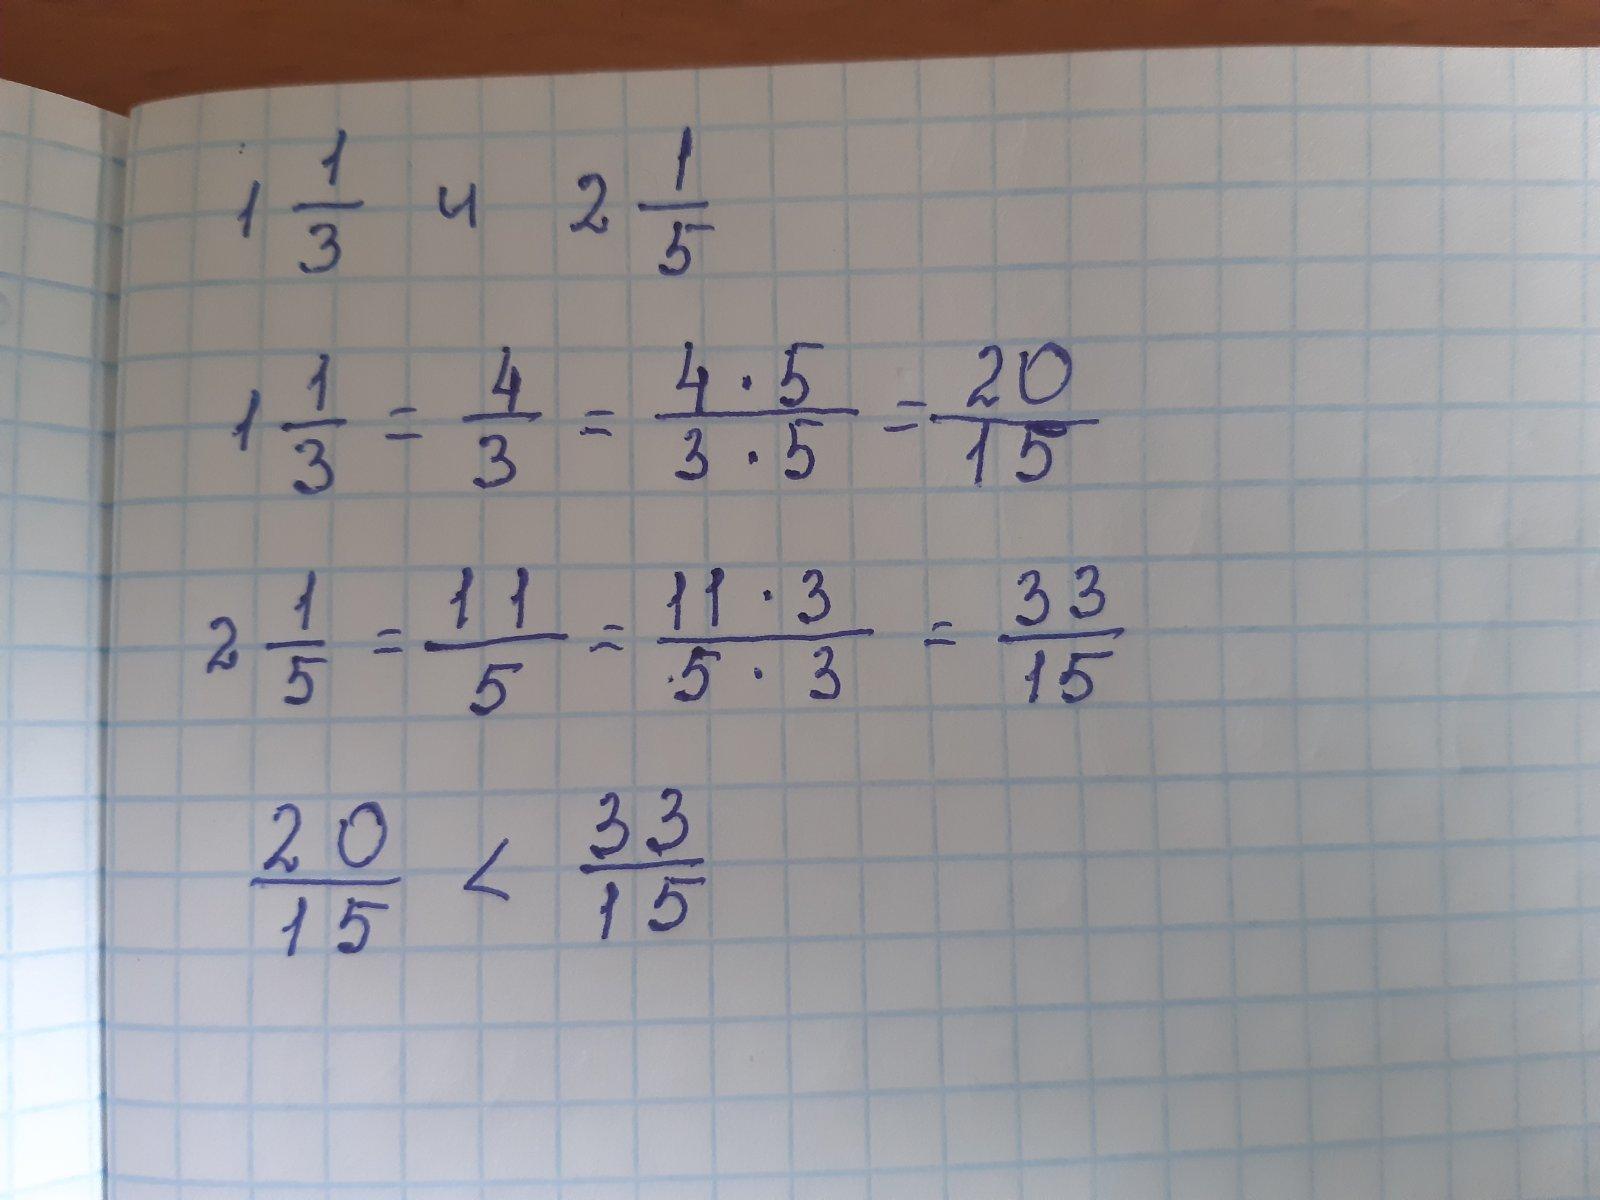 1 1/3 и 2 1/5
1 1/3 = 4/3 = 4·5/3·5 = 20/15
2 1/5 = 11/5 = 11·3/5·3 = 33/15
20/15 < 33/15